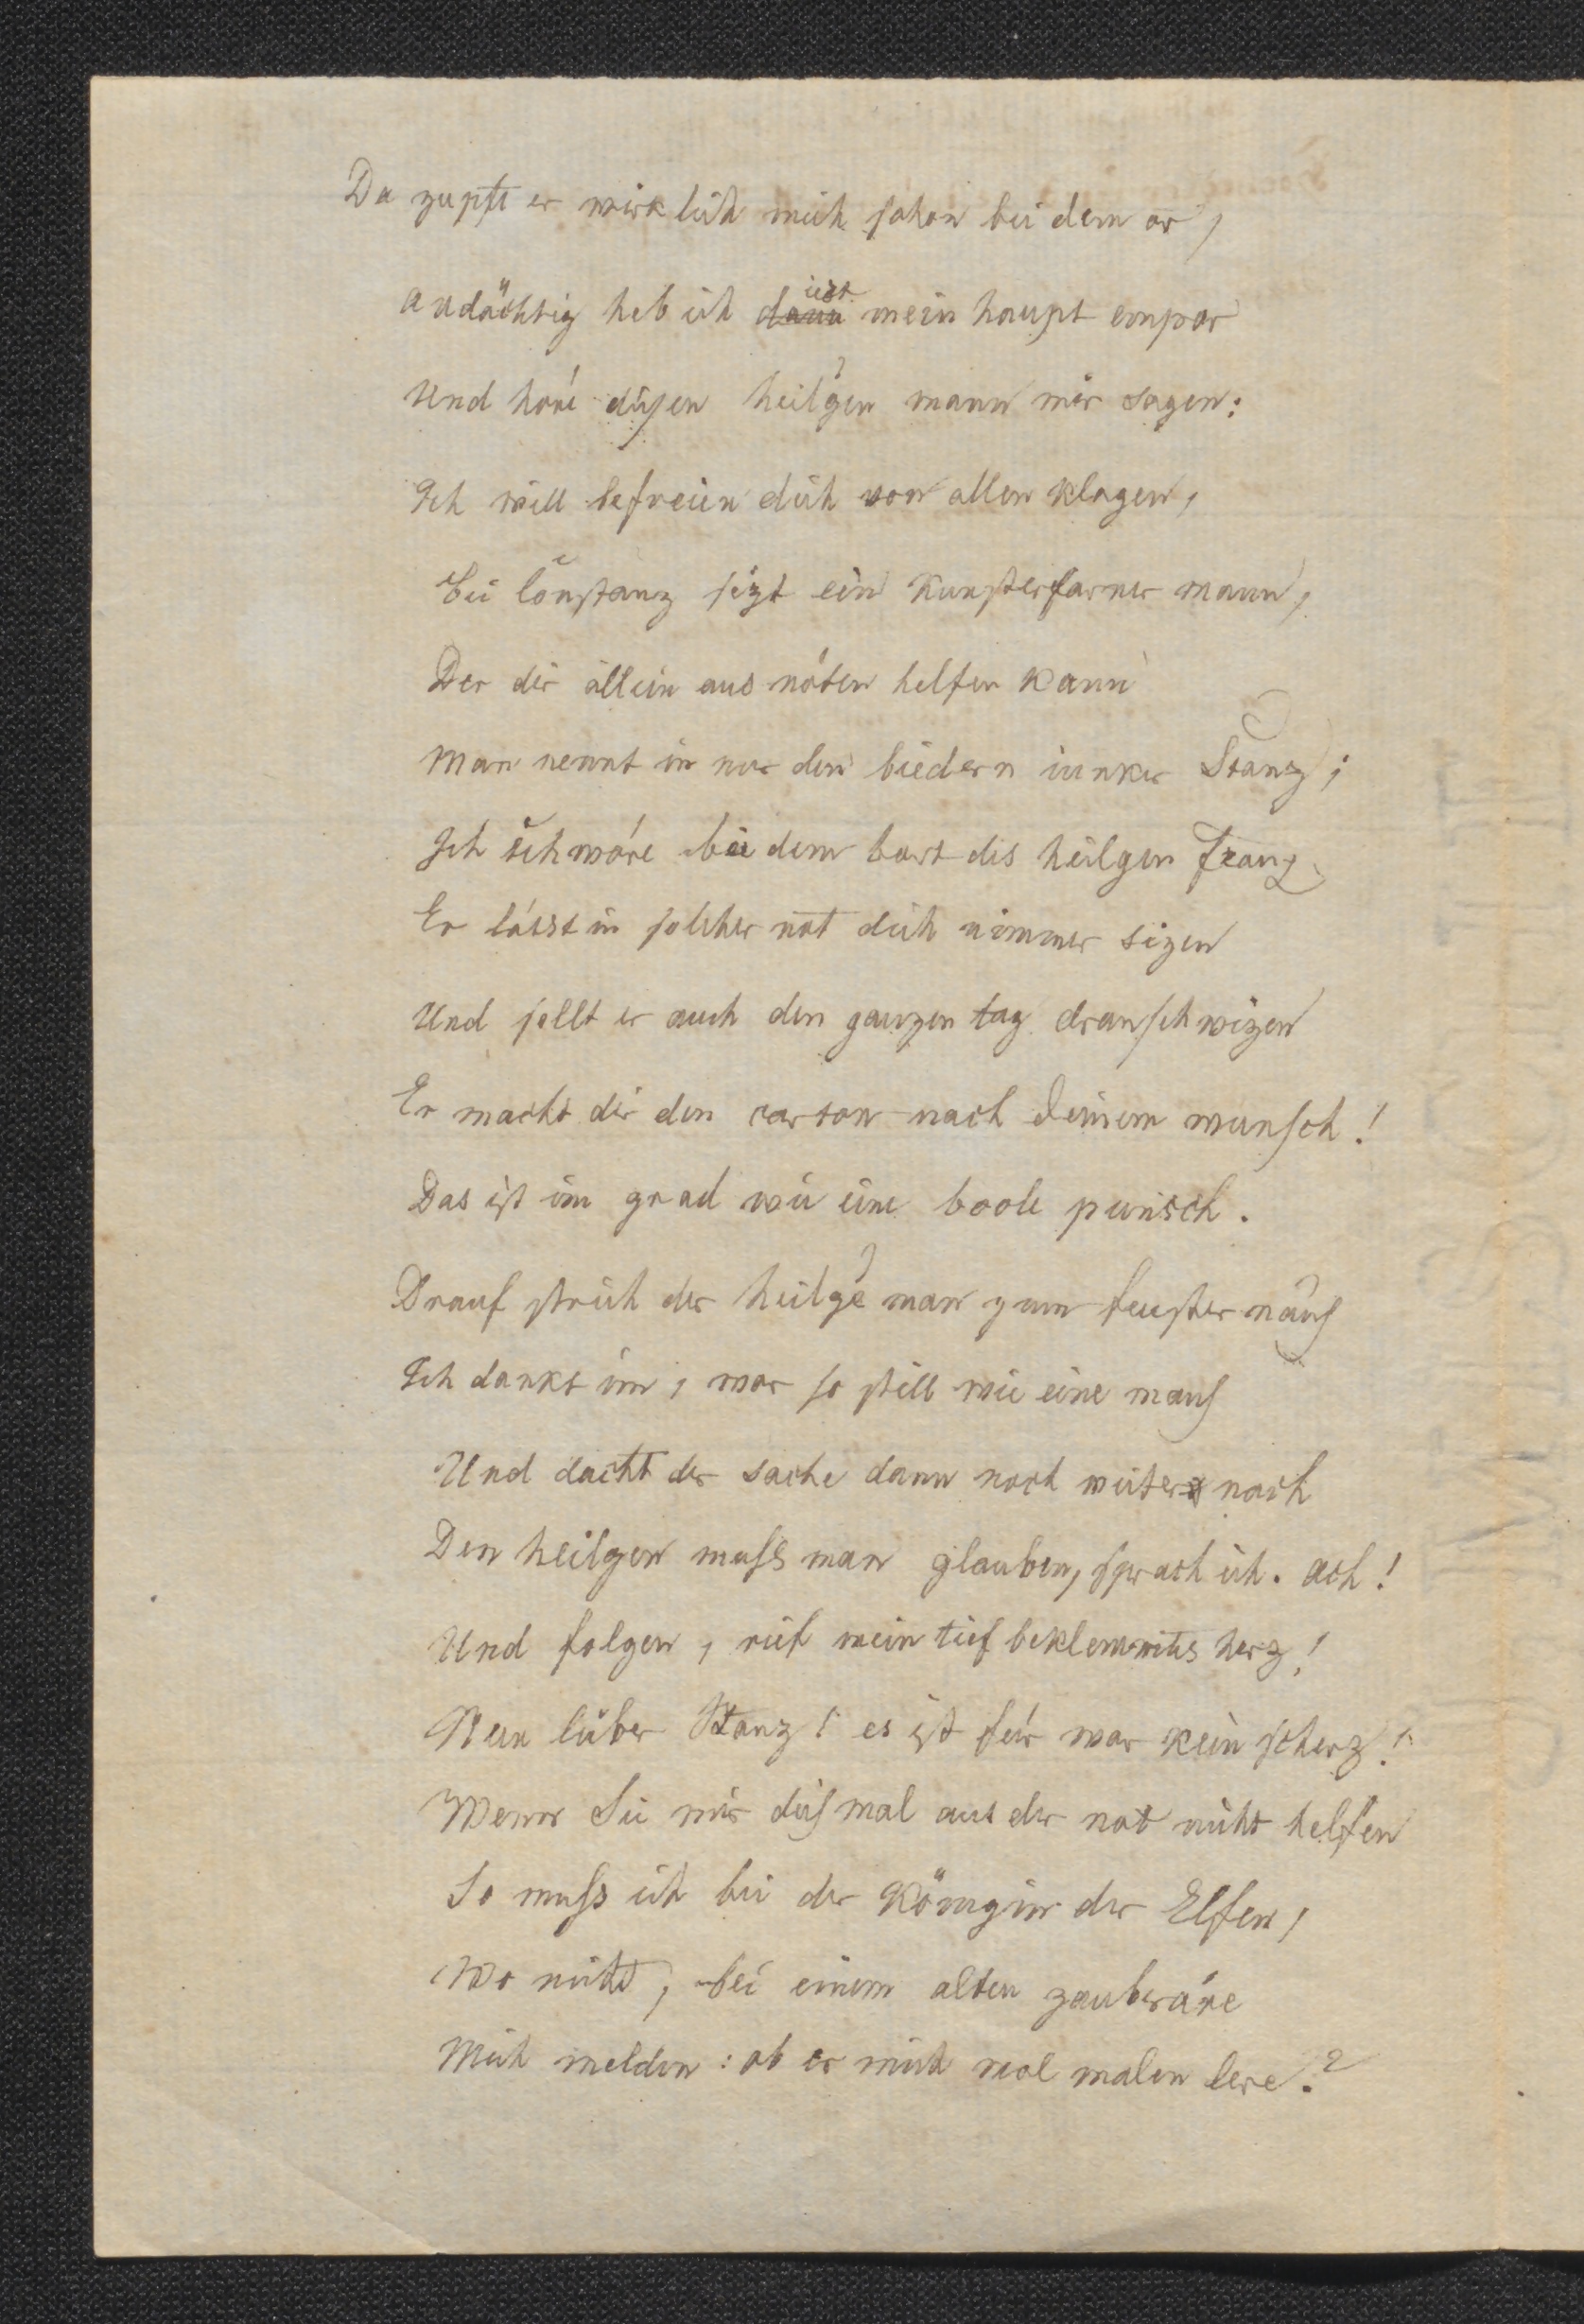 Da zupft er wirklich mich schon bei dem or,
andächtig heb ich dann iezt mein haupt empor
Und höre diesen heil'gen mann mir sagen:
Ich will befreien dich von allen klagen,
Bei Constanz sizt ein kunsterfarner mann,
Der dir allein aus nöten helfen kann
Man nennt in nur den biedern iunker Stanz;
Ich schwöre bei dem bart des heilgen Franz
Er lässt in solcher not dich nimmer sizen
Und sollt er auch den ganzen tag dran schwizen
Er macht dir den carton nach Deinem wunsch!
Das ist im grad wie eine boole punsch.
Drauf strich der heil'ge man zum fenster naus
Ich dankt im, war so still wie eine maus
Und dacht der sache dann noch weiter nach
Den heilgen muss man glauben, sprach ich. ach!
Und folgen, rief mein tief beklemmtes herz!
Nun lieber Stanz! es ist für war kein scherz!
Wenn Sie mir dismal aus der not nicht helfen
So muss ich bei der Königin der Elfen,
Wo nicht, bei einem alten zauberäre
Mich melden: ob er mich wol malen lere.?